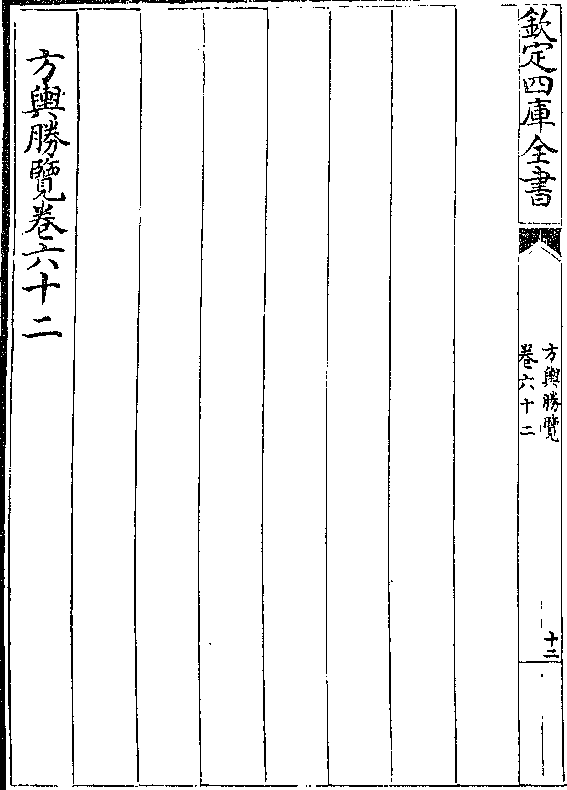 欽定四庫全書
方輿勝覽
卷六十二
十二
方輿勝覽卷六十二